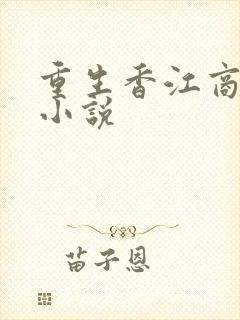 重生香江商
小说
苗子恩